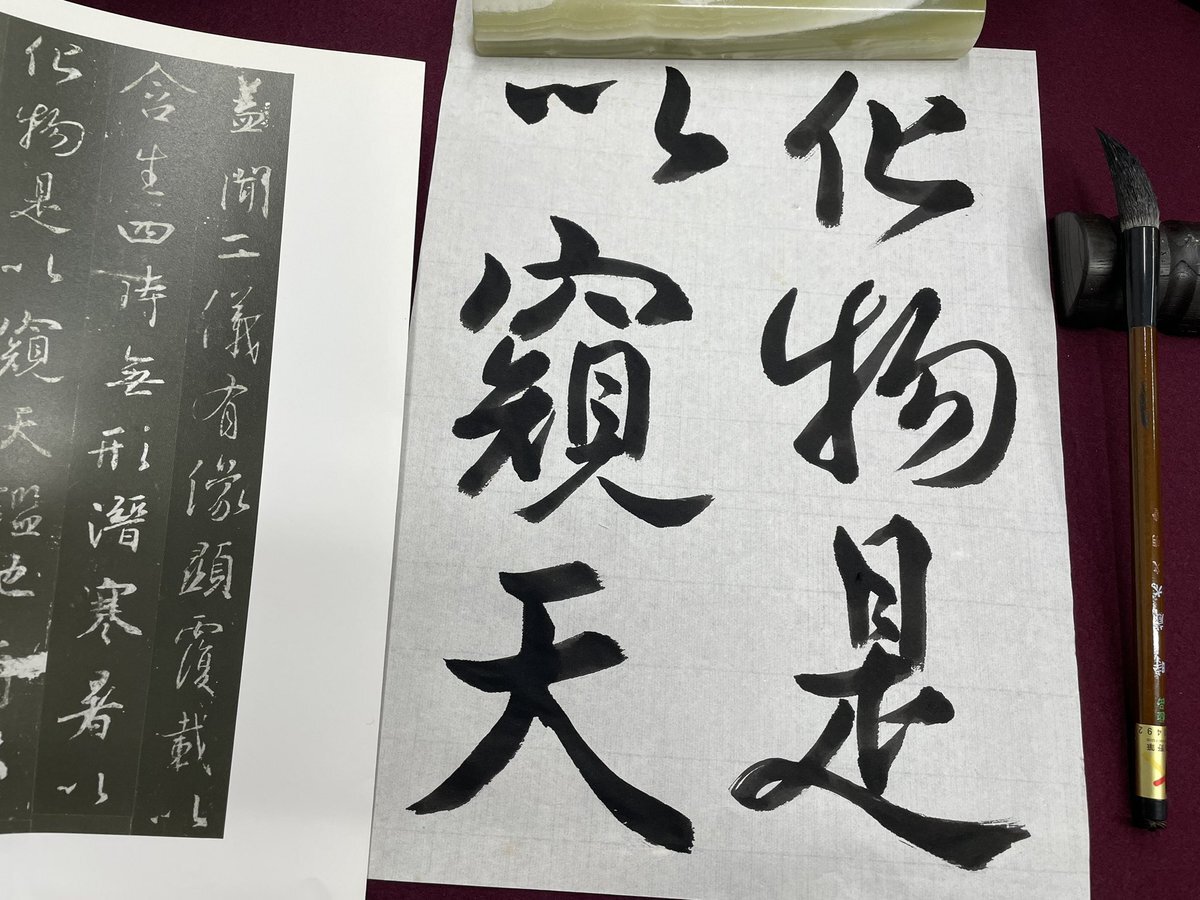 化物是
以窺天
蓋聞二儀有像顯覆載以
含生四時無形潛寒暑以
化物是以窺天鑑地